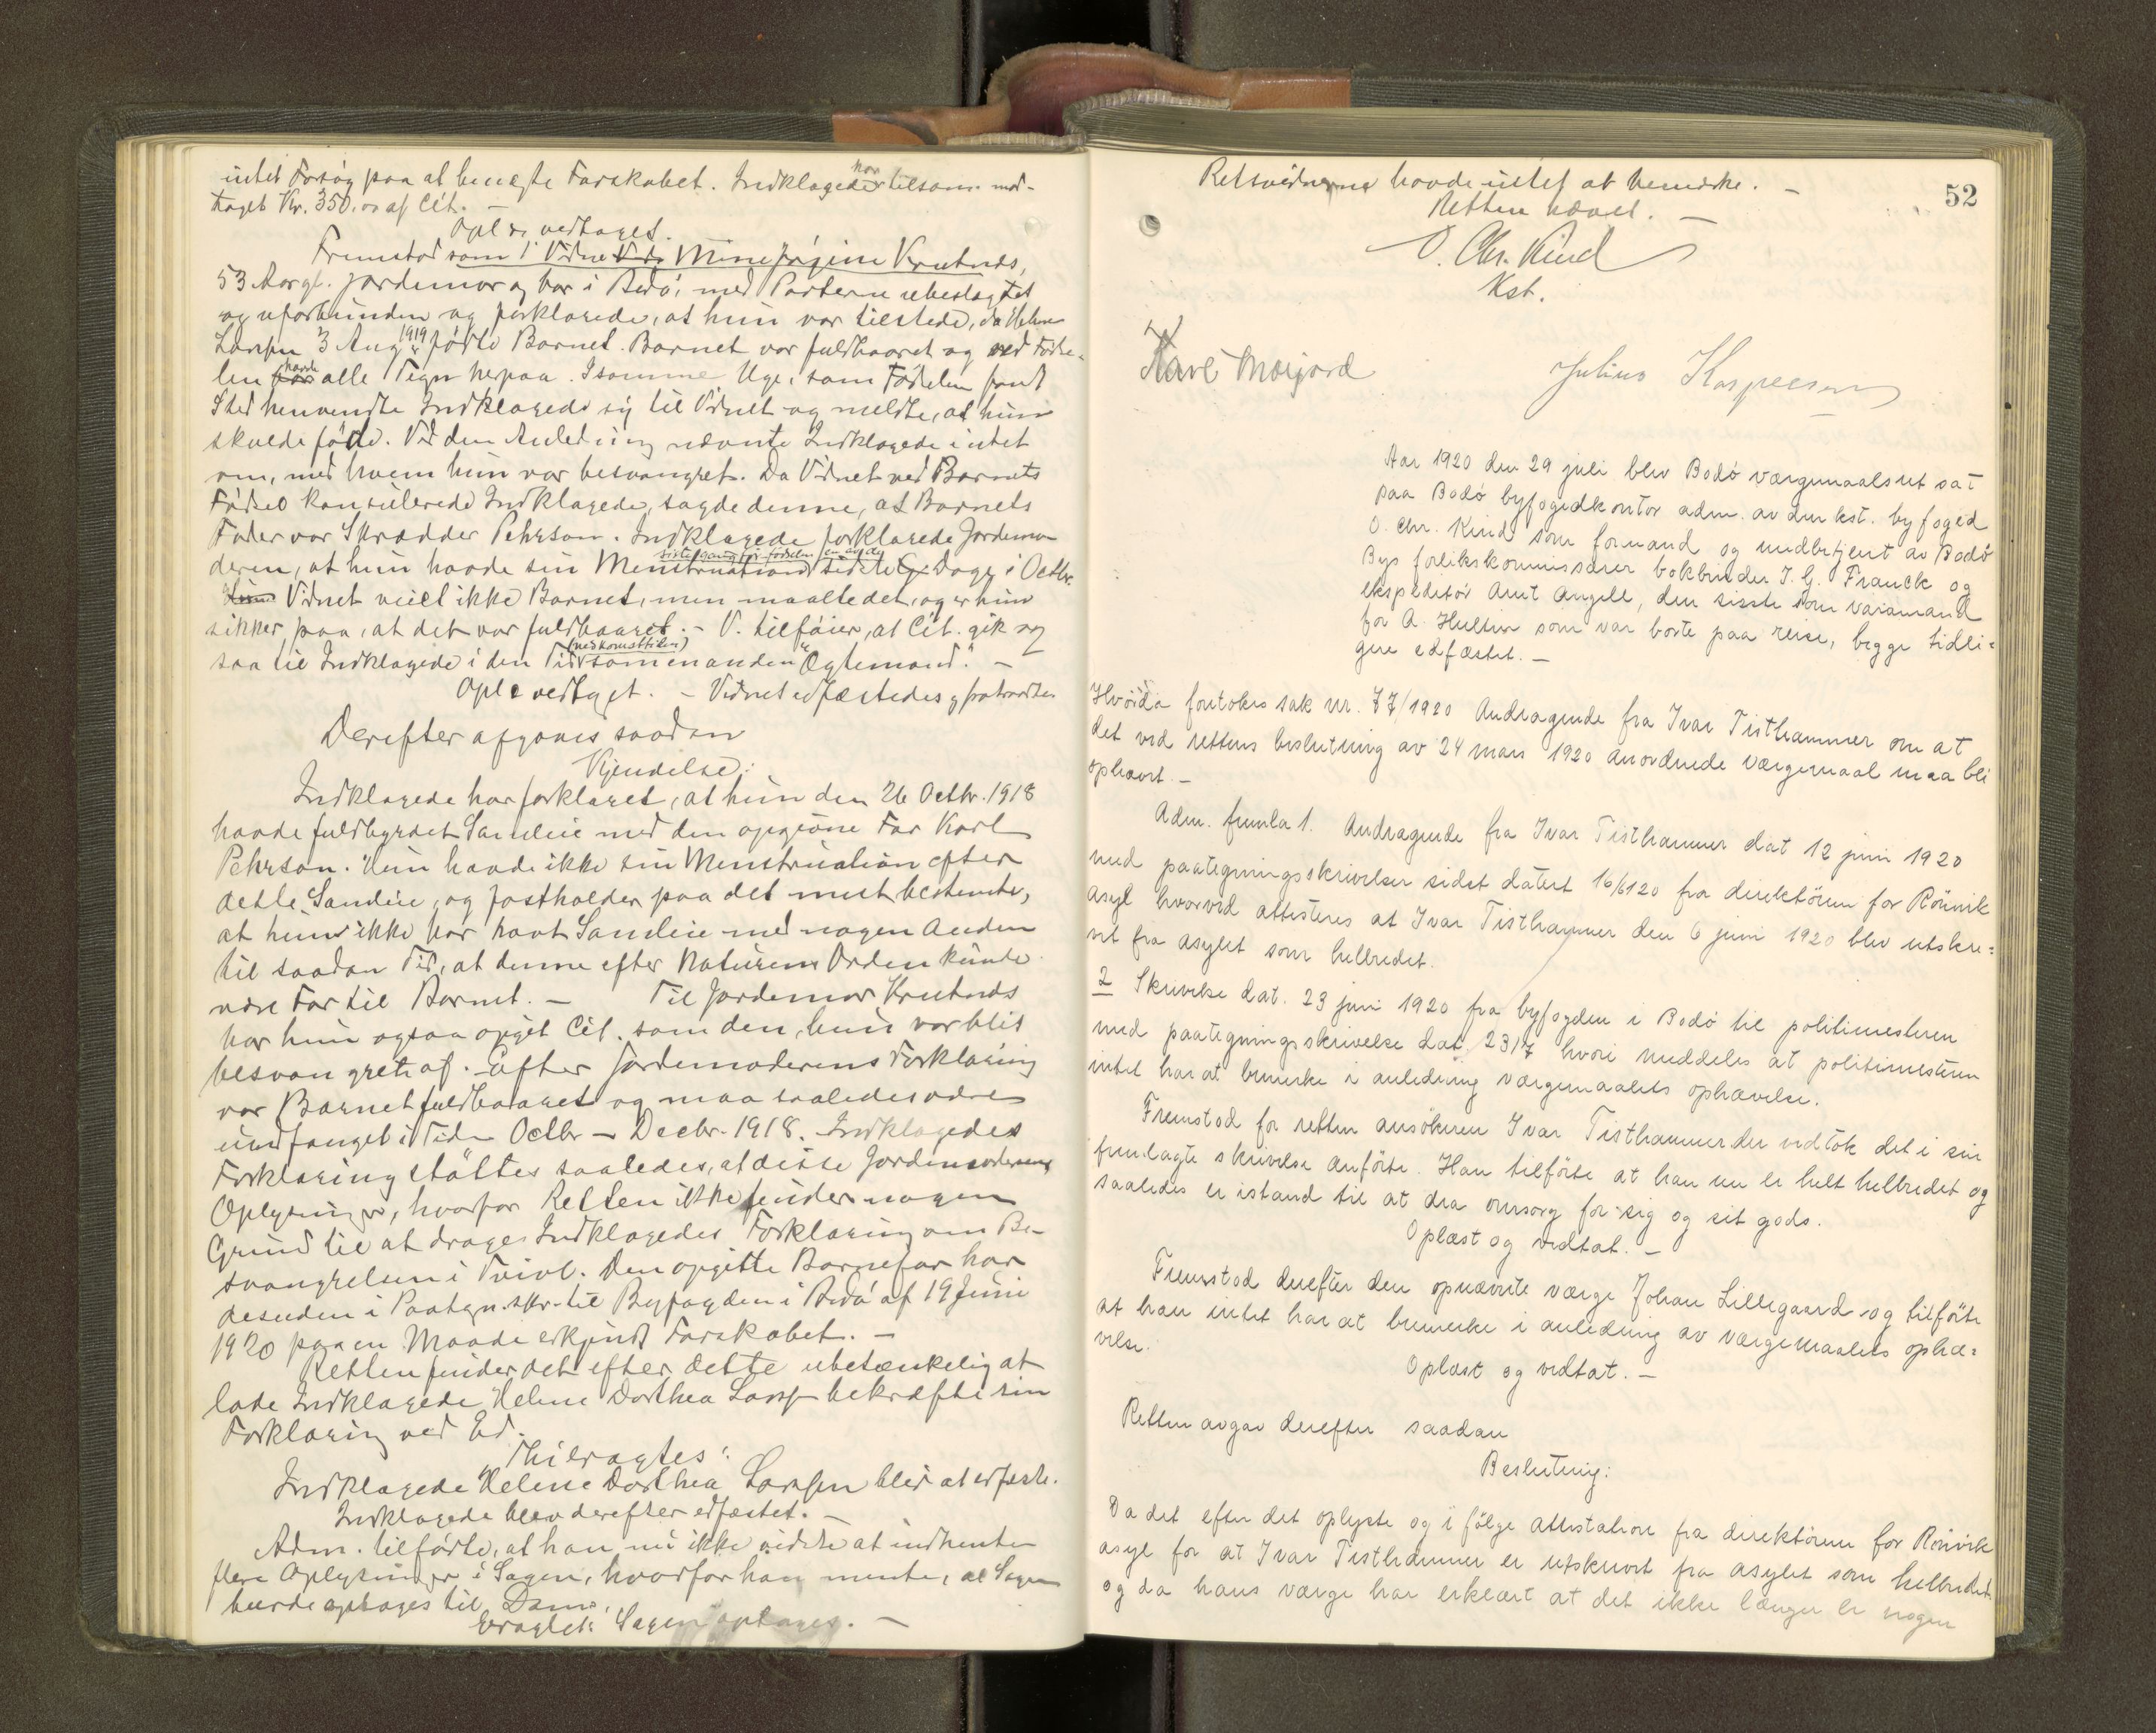 intet Forsøg paa at benegte Farskabet. Indklagede har tilsam. mod-
taget Kr. 350.00 af Cit. —
Opl. & vedtaget.
Fremstod som 1 Vidne Mine Jørgine Krutnes,
53 Aar gl. Jordemor og bor i Bodø, med Parterne ubeslægtet
og uforbunden og forklarede, at hun var tilstede, da Helene
Larssen 3 Aug 1919 fødte Barnet. Barnet var fuldbaaret og ved Føde-
len havde alle Tegn herpaa. I samme Uge, som Fødselen fandt
Sted henvendte Indklagede sig til Vidnet og meldte, at hun
skulde føde. Ved den Anledning nævnte Indklagede intet
om, med hvem hun var besvangret. Da Vidnet ved Barnets
Fødsel konsulerede Indklagede, sagde denne, at Barnets
Fader var Skrædder Pehrson. Indklagede forklarede Jordemo-
deren, at hun havde sin Menstruation sidste gang før fødselen en av de sidste Dage i Octbr.
Vidnet veiet ikke Barnet, men maalte det, og er hun
sikker paa, at det var fuldbaaret. - V. tilføier, at Cit. gik og
saa til Indklagede i den Tid (nedkomsttiden) som en anden "Ægtemand". —
Opl & vedtaget. - Vidnet edfæstedes & fratraadte
Derefter afgaves saadan
Kjendelse:
Indklagede har forklaret, at hun den 26 Octbr. 1918
havde fuldbyrdet Samleie med den opgivne Far Karl
Pehrson. Hun havde ikke sin Menstruation efter
dette Samleie, og fastholder paa det mest bestemte,
at hun ikke har havt Samleie med nogen Anden
til saadan Tid, at denne efter Naturens Orden kunde
være Far til Barnet. — Til Jordemor Krutnes
har hun ogsaa opgit Cit. som den, hun var blit
besvangret af. - Efter Jordemoderens Forklaring
var Barnet fuldbaaret og maa saaledes være
undfanget i Tiden Octbr - Decbr. 1918. Indklagedes
Forklaring støttes saaledes, at disse Jordemoderens
Oplysninger, hvorfor Retten ikke finder nogen
Grund til at drage Indklagedes Forklaring om Be-
svangrelsen i Tvivl. Den opgitte Barnefar har
desuden i Paategn.skr. til Byfogden i Bodø af 19 Juni
1920 paa en Maade erkjendt Farskabet. —
Retten finder det efter dette ubetænkelig at
lade Indklagede Helene Dorthea Larssen bekræfte sin
Forklaring ved Ed.
Thi eragtes:
Indklagede Helene Dorthea Larssen blir at edfæste.
Indklagede blev derefter edfæstet. —
Adm. tilførte, at han nu ikke vidste at indhente
flere Oplysninger i Sagen, hvorfor han mente, at Sagen
burde optages til Dom.
Eragtet: Sagen optages. —
52
Retsvidnerne havde intet at bemerke. —
Retten hævet. —
O. Chr. Kind
Kst.
Karl Morjord
Julius Kaspersen
Aar 1920 den 29 juli blev Bodø værgemaalsret sat
paa Bodø byfogedkontor adm. av den kst. byfoged
O. Chr. Kind som formand og medbetjent av Bodø
Bys forlikskommissærer bokbinder J. G. Franck og
ekspeditør Amt Angell, den sisste som varamand
for A. Hultin som var borte paa reise, begge tidli=
gere edfæstet. —
Hvorda foretokes sak nr. 77/1920 Andragende fra Ivar Tisthammer om at
det ved rettens beslutning av 24 mars 1920 anordnede værgemaal maa bli
ophævet. —
Adm. fremla 1. Andragende fra Ivar Tisthammer dat 12 juni 1920
med paategningsskrivelser sidst datert 16/6 20 fra direktøren for Rönvik
asyl hvorved attesteres at Ivar Tisthammer den 6 juni 1920 blev utskre=
vet fra asylet som helbredet.
2 Skrivelse dat. 23 juni 1920 fra byfogden i Bodö til politimesteren
med paategningsskrivelse dat 23/7 hvori meddeles at politimesteren
intet har at bemerke i anledning værgemaalets ophævelse.
Fremstod for retten ansökeren Ivar Tisthammer der vedtok det i sin
fremlagte skrivelse anförte. Han tilförte at han nu er helt helbredet og
saaledes er istand til at dra omsorg for sig og sit gods.
Oplæst og vedtat. —
Fremstod derefter den opnævnte værge Johan Lillegaard og tilförte
at han intet har at bemerke i anledning av værgemaalets ophæ=
velse.
Oplæst og vedtat. —
Retten avgav derefter saadan
Beslutning:
Da det efter det oplyste og i fölge attestation fra direktören for Rönvik
asyl for at Ivar Tisthammer er utskrevet fra asylet som helbredet
og da hans værge har erklært at det ikke længer er nogen